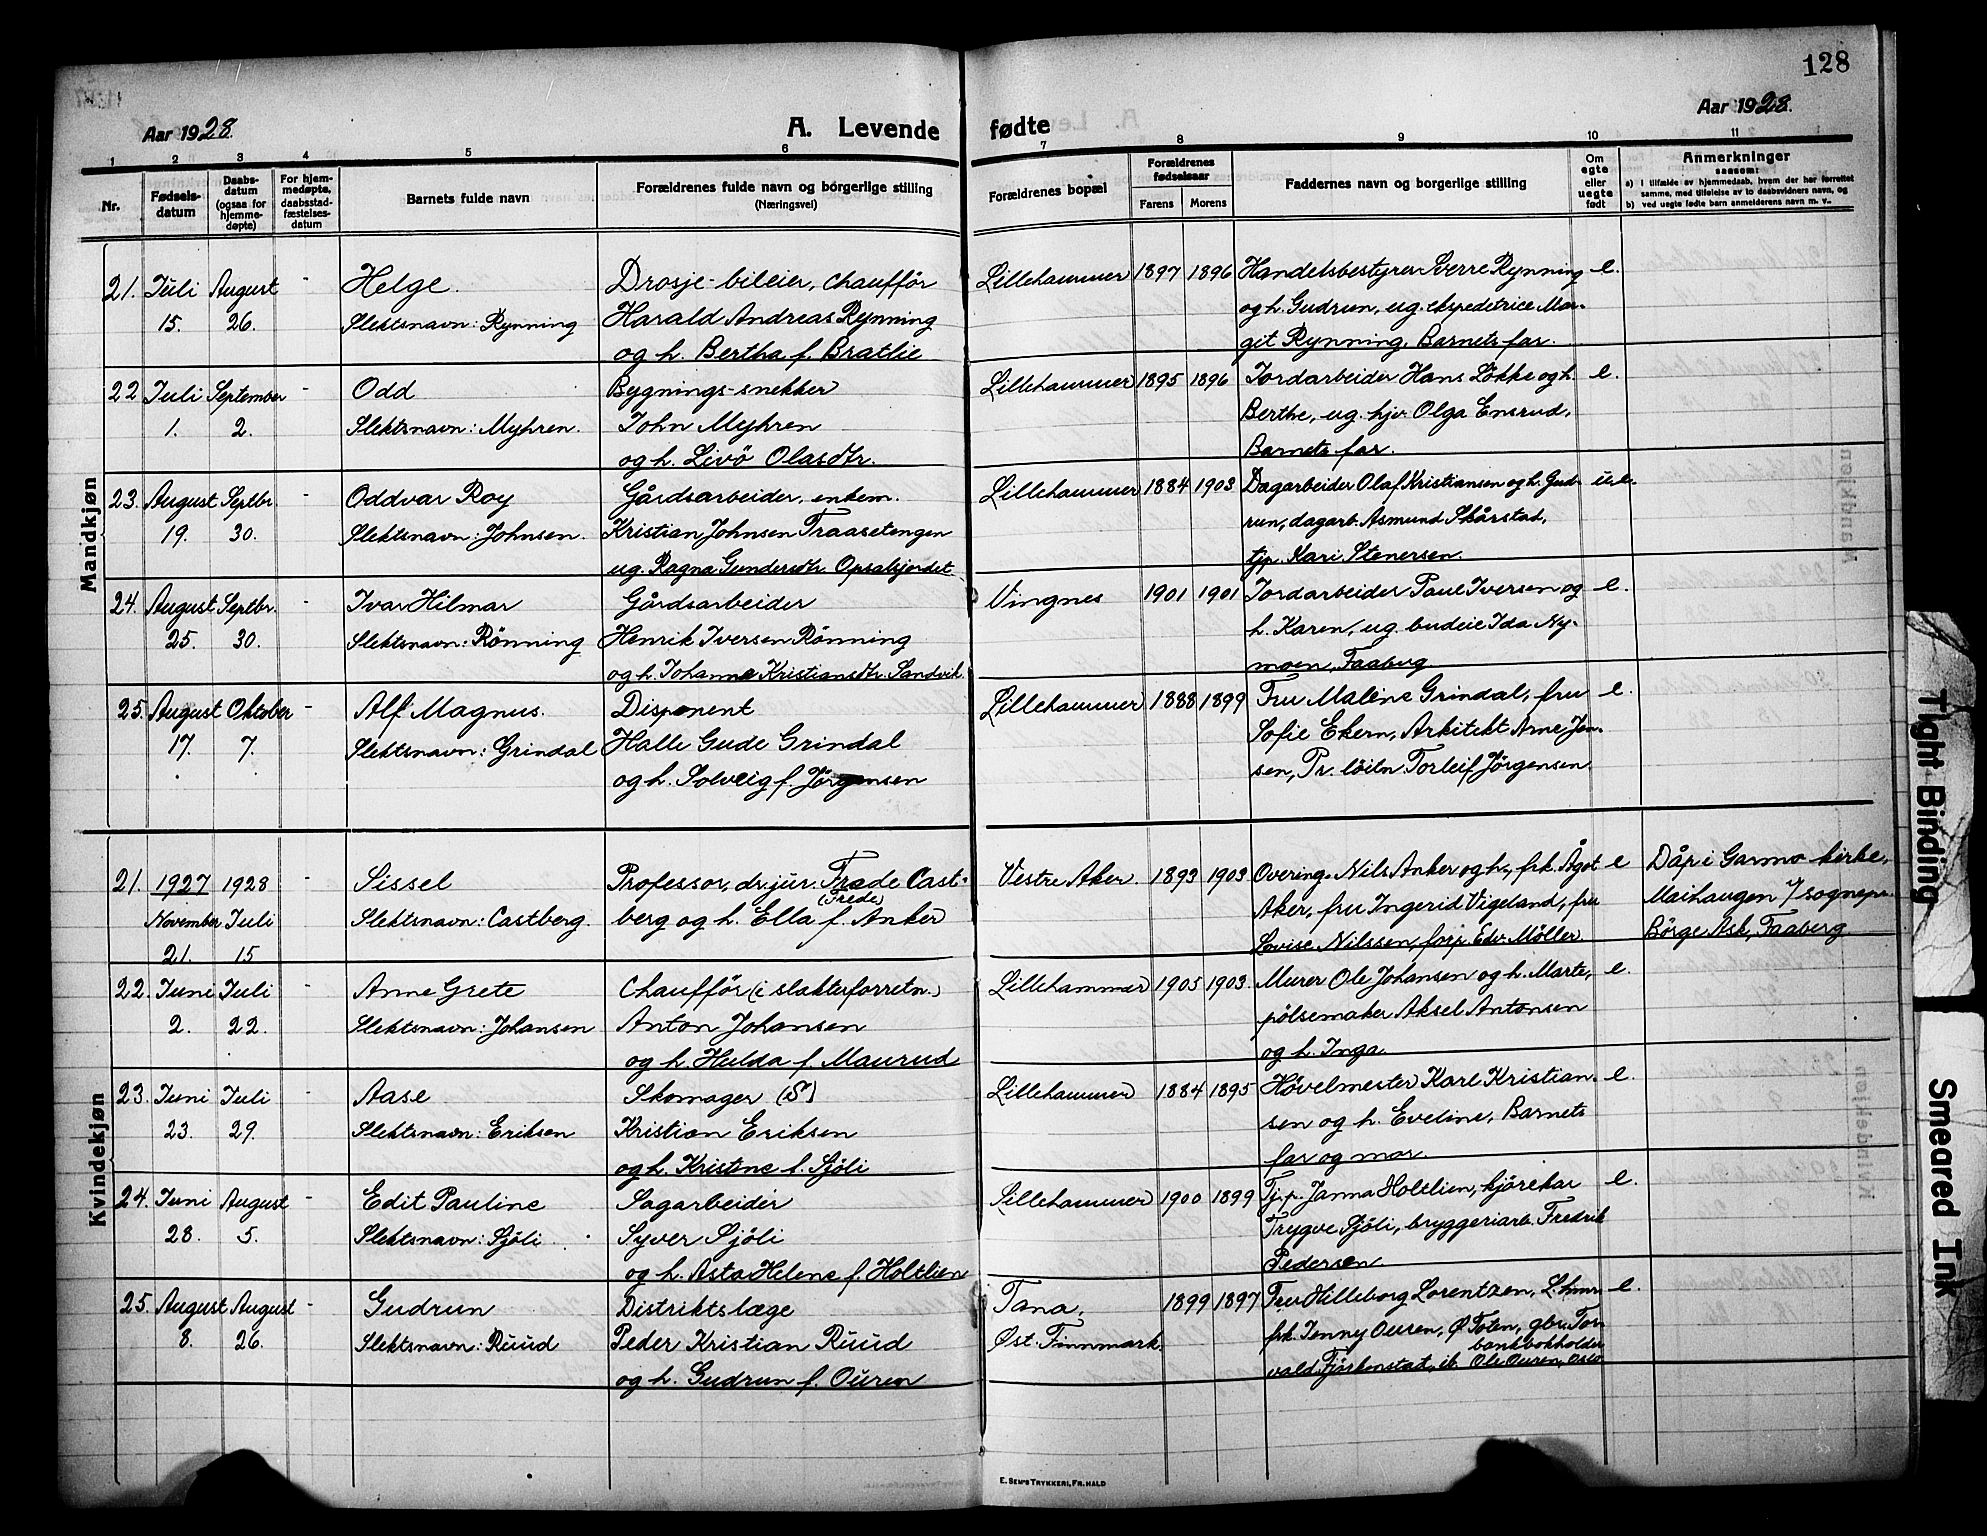 128
Aar 1928.
A. Levende fødte
Aar 1928.
1 2 3 4 5 6 7 8 9 10 11
Nr.
Fødsels-
datum
Daabs-
datum
(ogsaa for
hjemme-
døpte)
For hjem-
medøpte,
daabsstad-
fæstelses-
datum
Barnets fulde navn
Forældrenes fulde navn og borgerlige stilling
(Næringsvei)
Forældrenes bopæl
Forældrenes
fødselsaar
Farens Morens
Faddernes navn og borgerlige stilling
Om
ægte
eller
uegte
født
Anmerkninger
saasom:
a) i tilfælde av hjemmedaab, hvem der har forrettet
samme, med tilføielse av to daabsvidners navn, og
b) ved uegte fødte barn anmelderens navn m. v.
Mandkjøn
21. Juli August - Helge. Drosje-bileier, chaufför Lillehammer 1897 1896 Handelsbestyrer Sverre Rynning e.
15. 26. Slektsnavn: Rynning Harald Andreas Rynning og h. Gudrun, ug. ekspeditrice Mar-
og h. Bertha f. Bratlie git Rynning, Barnets far.
22 Juli September - Odd Bygnings-snekker Lillehammer 1895 1896 Jordarbeider Hans Lökke og h. e.
1. 2. Slektsnavn: Myhren. John Myhren Berthe, ug. hjv. Olga Ensrud,
og h. Livö Olasdtr. Barnets far.
23. August Septbr. - Oddvar Roy Gårdsarbeider, enkem. Lillehammer 1884 1903 Dagarbeider Olaf Kristiansen og h. Gud- u.e.
19. 30. Slektsnavn: Johnsen. Kristian Johnsen Traasetengen run, dagarb. Asmund Skårstad,
ug. Ragna Gundersdtr. Opsabjordet tjp. Kari Stenersen.
24. August Septbr. - Ivar Hilmar Gårdsarbeider Vingnes 1901 1901 Jordarbeider Paul Iversen og e.
25. 30. Slektsnavn: Rönning Henrik Iversen Rönning h. Karen, ug. budeie Ida Ny-
og h. Johanne Kristiansdtr. Sandvik moen, Faaberg
25. August Oktober - Alf Magnus. Disponent Lillehammer 1888 1899 Fru Malene Grindal, fru e.
17. 7. Slektsnavn: Grindal Halle Gude Grindal Sofie Ekern, Arkitekt Arne Jen-
og h. Solveig f. Jörgensen sen, Pr. löitn. Torleif Jörgensen.
Kvindekjøn
21. 1927 1928 Sissel Professor, dr. jur. Frade Cast- Vestre Aker. 1893 1903 Overing. Nils Anker og h., frk. Ågot e Dåp i Garmo kirke,
(Frede)
November Juli Slektsnavn: Castberg. berg og h. Ella f. Anker Aker, fru Ingerid Vigeland, fru Maihaugen v/sognepr.
21. 15 Lovise Nilssen, forp. Edv. Möller. Börge Ask, Faaberg.
22. Juni Juli - Anne Grete Chaufför (i slakterforretn.) Lillehammer 1905 1903. Murer Ole Johansen og h. Marte, e.
2. 22. Slektsnavn: Johansen Anton Johansen pölsemaker Aksel Antonsen
og h. Hulda f. Maurud og h. Inga.
23. Juni Juli - Aase Skomager (S) Lillehammer 1884 1895 Hövelmester Karl Kristian- e.
23. 29. Slektsnavn: Eriksen Kristian Eriksen sen og h. Eveline, Barnets
og h. Kristine f. Sjöli far og mor.
24. Juni August - Edit Pauline Sagarbeider Lillehammer 1900 1899 Tjp. Janna Holtlien, kjörekar e.
28. 5. Slektsnavn: Sjöli. Syver Sjöli Trygve Sjöli, bryggeriarb. Fredrik
og h. Asta Helene f. Holtlien Pedersen.
25. August August - Gudrun Distriktslæge Tana, 1899 1897 Fru Hilleborg Lorentzen, L.hmr. e.
8. 26. Slektsnavn: Ruud Peder Kristian Ruud Øst. Finnmark. frk. Jenny Ouren, Ø. Toten, gbr. Tor-
bankbokholder
og h. Gudrun f. Ouren vald Fjörkenstad, ib. Ole Ouren, Oslo
E. Sem's Trykkeri, Fr.hald
Tight Binding
Smeared Ink